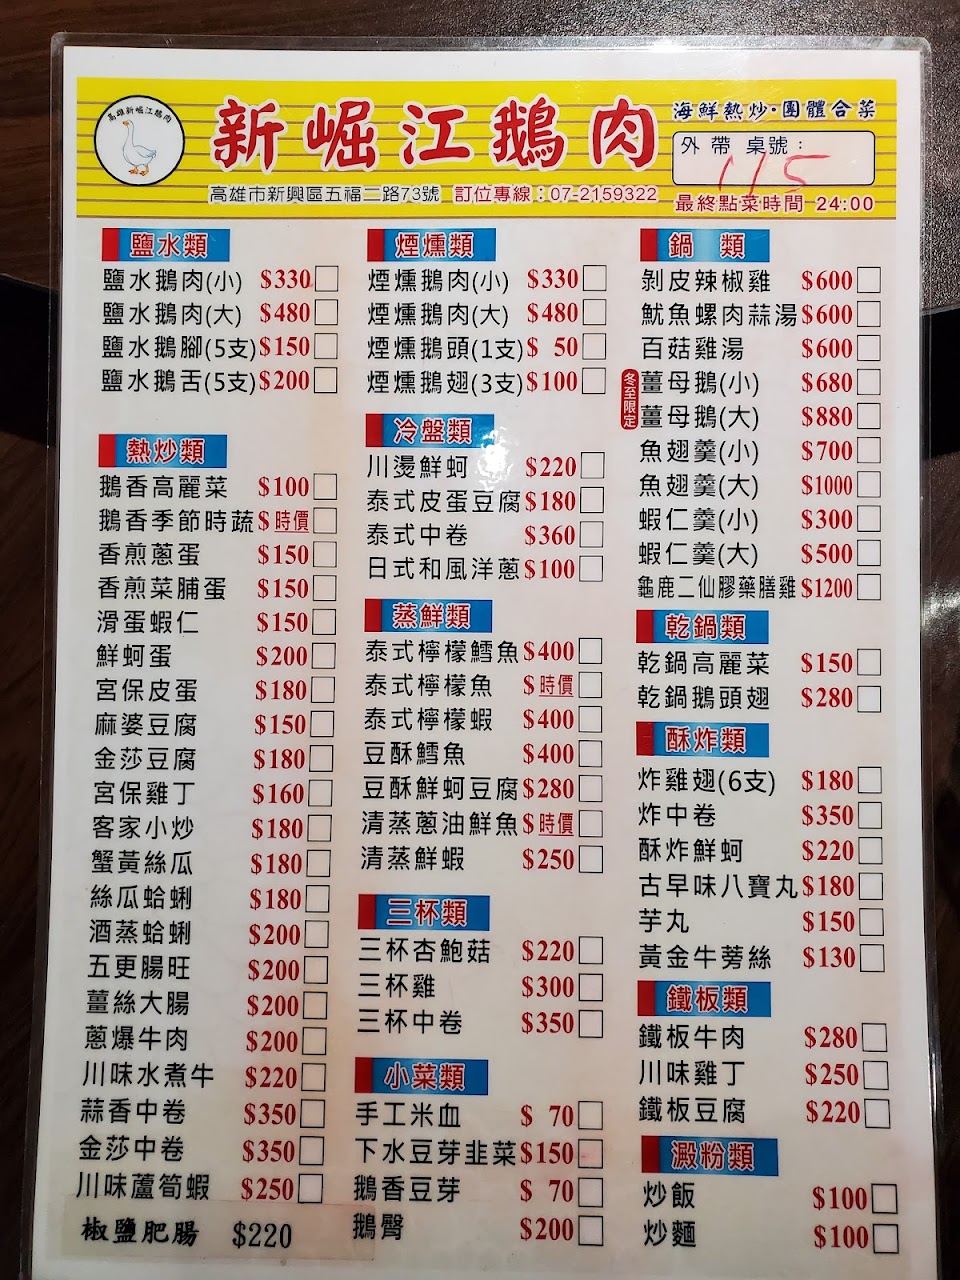 高雄新崛江鵝肉
新崛江鵝肉
海鮮熱炒·團體合菜
外帶 桌號：
115
高雄市新興區五福二路73號 訂位專線：07-2159322
最終點菜時間 24:00
鹽水類
鹽水鵝肉(小) $330
鹽水鵝肉(大) $480
鹽水鵝腳(5支) $150
鹽水鵝舌(5支) $200
熱炒類
鵝香高麗菜 $100
鵝香季節時蔬 $時價
香煎蔥蛋 $150
香煎菜脯蛋 $150
滑蛋蝦仁 $150
鮮蚵蛋 $200
宮保皮蛋 $180
麻婆豆腐 $150
金莎豆腐 $180
宮保雞丁 $160
客家小炒 $180
蟹黃絲瓜 $180
絲瓜蛤蜊 $180
酒蒸蛤蜊 $200
五更腸旺 $200
薑絲大腸 $200
蔥爆牛肉 $200
川味水煮牛 $220
蒜香中卷 $350
金莎中卷 $350
川味蘆筍蝦 $250
椒鹽肥腸 $220
煙燻類
煙燻鵝肉(小) $330
煙燻鵝肉(大) $480
煙燻鵝頭(1支) $ 50
煙燻鵝翅(3支) $100
冷盤類
川燙鮮蚵 $220
泰式皮蛋豆腐 $180
泰式中卷 $360
日式和風洋蔥 $100
蒸鮮類
泰式檸檬鱈魚 $400
泰式檸檬魚 $時價
泰式檸檬蝦 $400
豆酥鱈魚 $400
豆酥鮮蚵豆腐 $280
清蒸蔥油鮮魚 $時價
清蒸鮮蝦 $250
三杯類
三杯杏鮑菇 $220
三杯雞 $300
三杯中卷 $350
小菜類
手工米血 $ 70
下水豆芽韭菜 $150
鵝香豆芽 $ 70
鵝臀 $200
鍋 類
剝皮辣椒雞 $600
魷魚螺肉蒜湯 $600
百菇雞湯 $600
冬至限定
薑母鵝(小) $680
薑母鵝(大) $880
魚翅羹(小) $700
魚翅羹(大) $1000
蝦仁羹(小) $300
蝦仁羹(大) $500
龜鹿二仙膠藥膳雞 $1200
乾鍋類
乾鍋高麗菜 $150
乾鍋鵝頭翅 $280
酥炸類
炸雞翅(6支) $180
炸中卷 $350
酥炸鮮蚵 $220
古早味八寶丸 $180
芋丸 $150
黃金牛蒡絲 $130
鐵板類
鐵板牛肉 $280
川味雞丁 $250
鐵板豆腐 $220
澱粉類
炒飯 $100
炒麵 $100